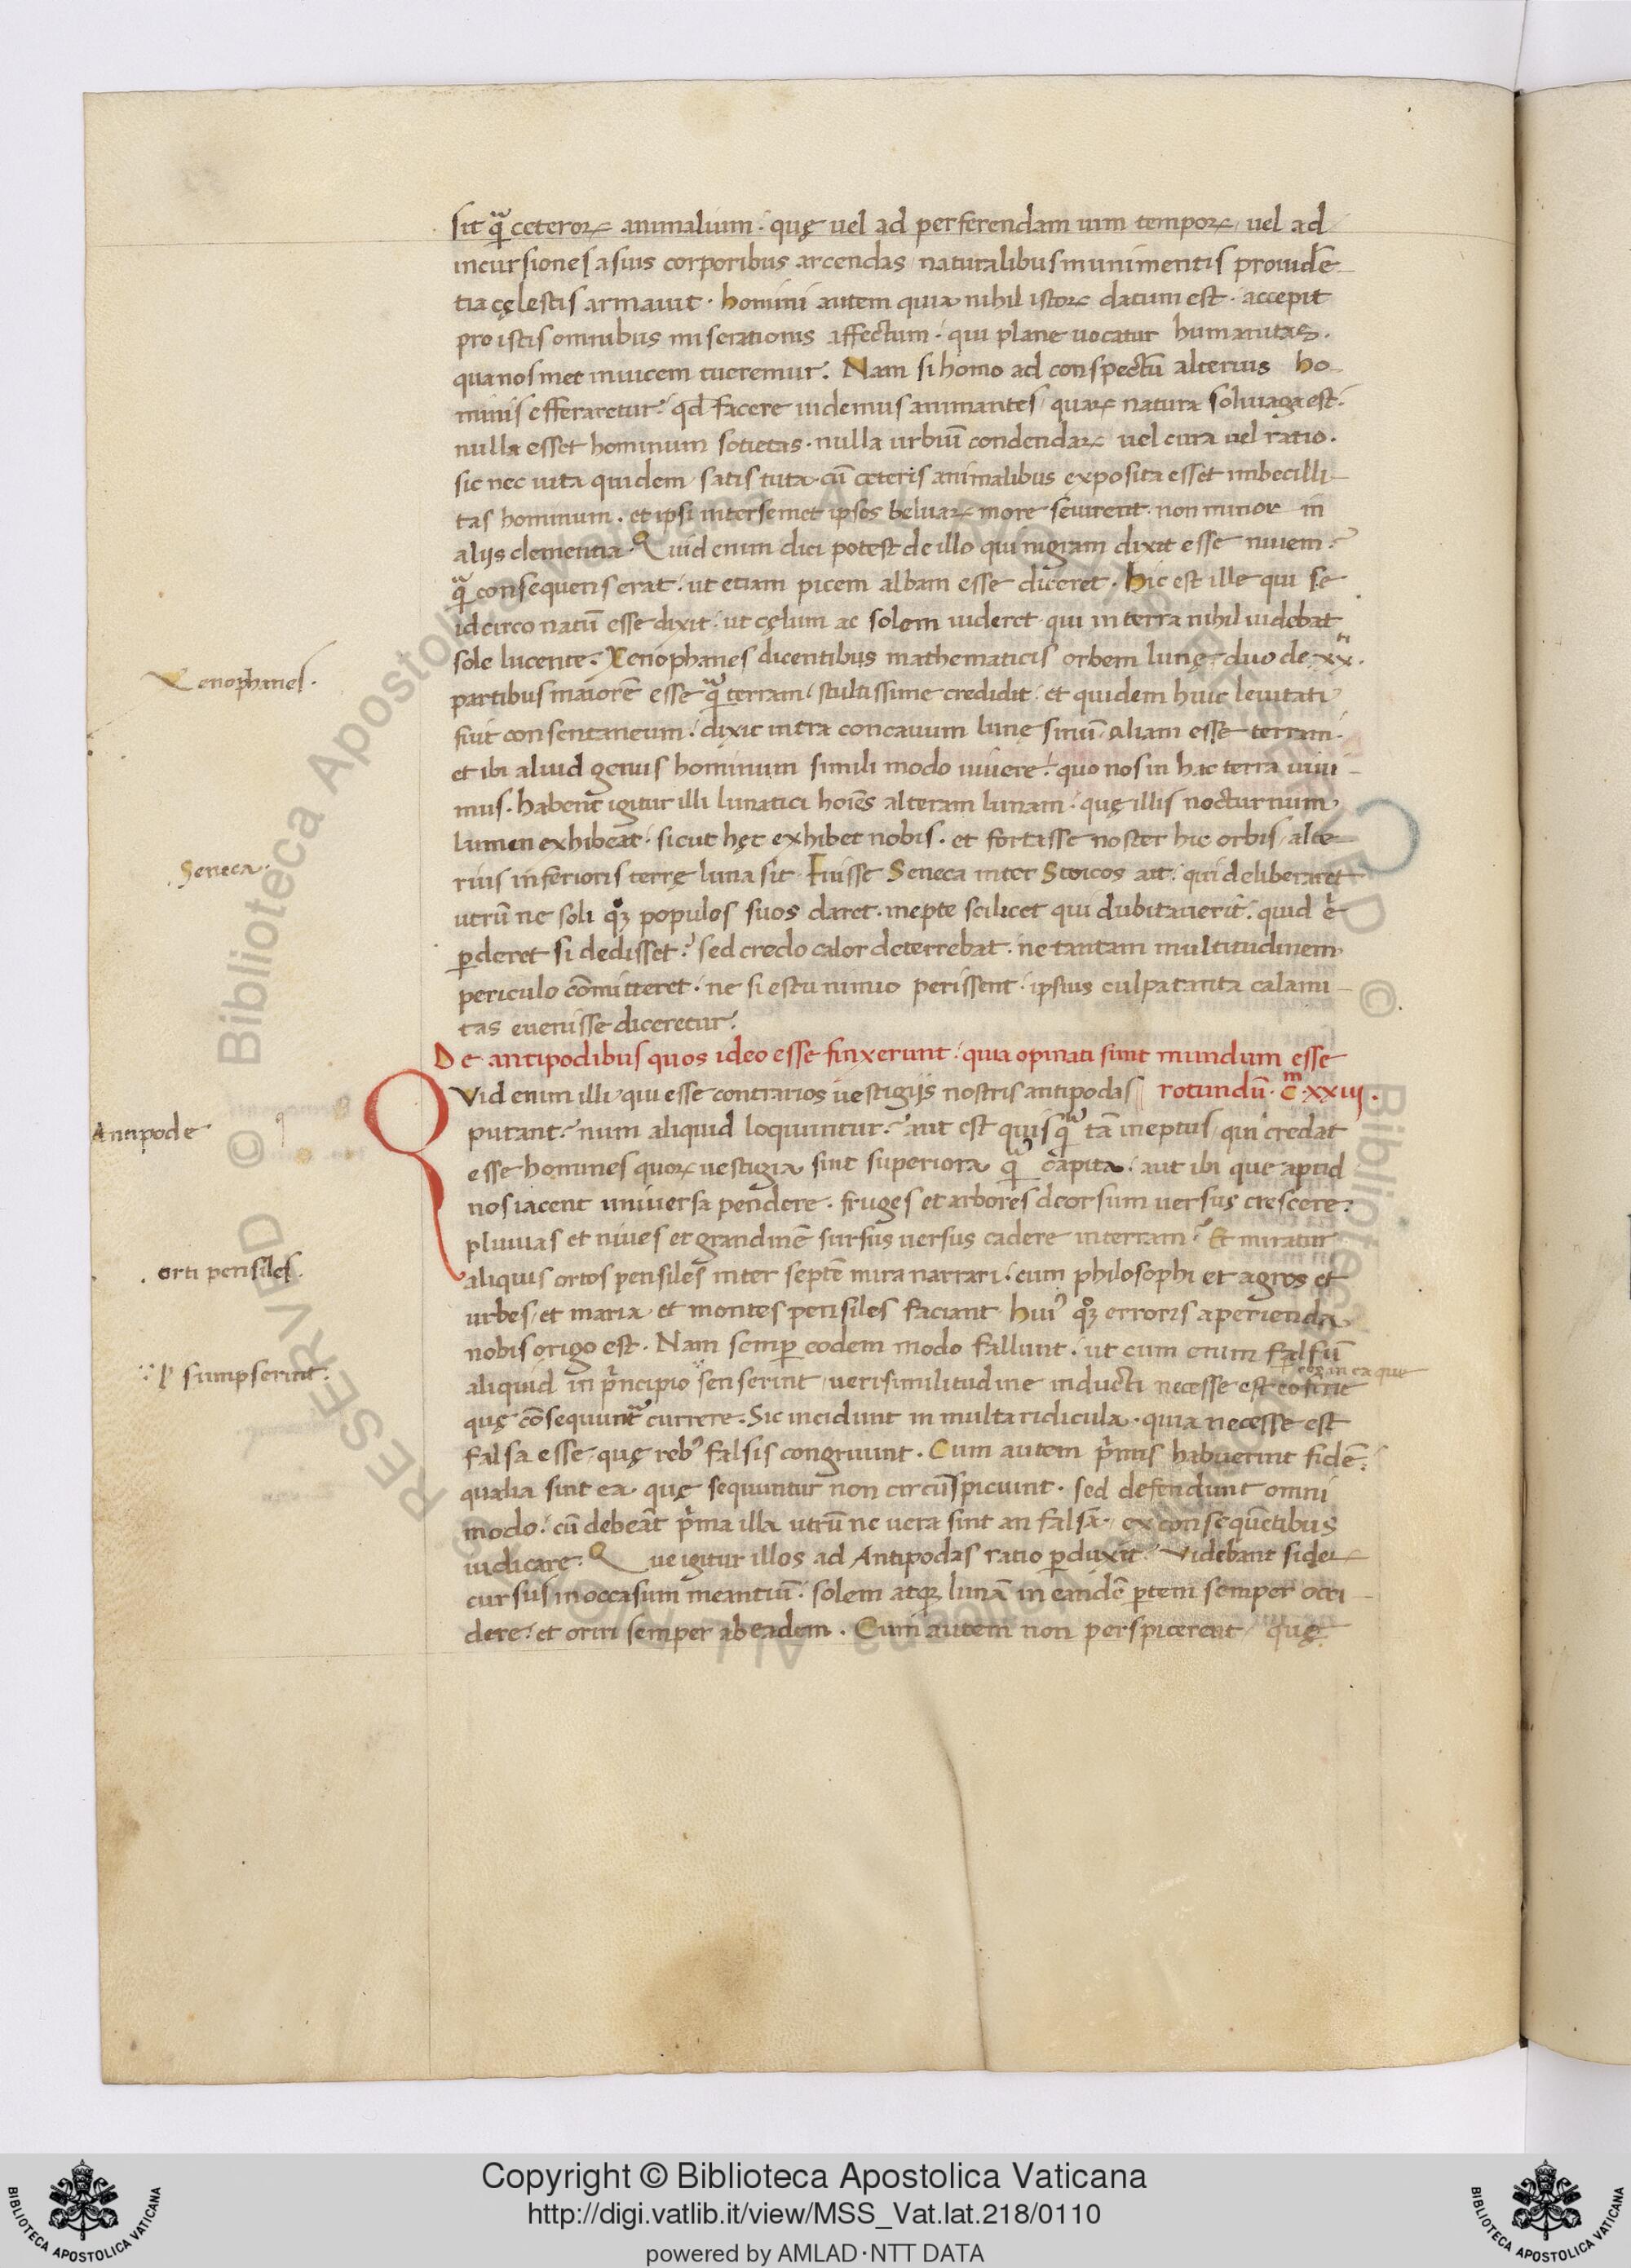 sit qͣ ceteroꝝ animalium. quę uel ad perferendam uim tempoꝝ, uel ad
incursiones a suis corporibus arcendas, naturalibus munimentis prouidē
tia cęlestis armauit. homini autem quia nihil istoꝝ datum est. accepit
pro istis omnibus miserationis affectum. qui plane uocatur humanitas.
qua nosmet inuicem tueremur. Nam si homo ad conspectū alterius ho
minis efferaretur. qđ facere uidemus animantes, quaꝝ natura soliuaga est.
nulla esset hominum societas. nulla urbiū condendaꝝ uel cura uel ratio.
sic nec uita quidem satis tuta. cū ceteris animalibus exposita esset imbecilli-
tas hominum. et ipsi inter semet ipsos beluaꝝ more seuirent. non minor in
alijs clementia. Quid enim dici potest de illo qui nigram dixit esse niuem?
qͣ consequens erat. ut etiam picem albam esse diceret. Hic est ille qui se
idcirco natū esse dixit. ut cęlum ac solem uideret. qui in terra nihil uidebat
sole lucente. Xenophanes dicentibus mathematicis orbem lunę, duo de xx.
Xenophanes.
partibus maiorē esse qͣ terram, stultissime credidit. et quidem huic leuitati
fuit consentaneum. dixit intra concauum lunę sinū, aliam esse terram.
et ibi aliud genus hominum simili modo uiuere. quo nos in hac terra uiui-
mus. habent igitur illi lunatici hoīes alteram lunam. quę illis nocturnum
lumen exhibeat. sicut hęc exhibet nobis. et fortasse noster hic orbis, alte
Seneca.
rius inferioris terrę luna sit. Fuisse Seneca inter Stoicos ait. qui deliberaret
utrū ne soli qͦꝫ populos suos daret. inepte scilicet qui dubitauerit. quid .n.
ꝑderet si dedisset? sed credo calor deterrebat. ne tantam multitudinem
periculo cōmitteret. ne si estu nimio perissent. ipsius culpa tanta calami-
tas euenisse diceretur.
De antipodibus quos ideo esse finxerunt. quia opinati sunt mundum esse
rotundū. c̄.ͫ xxiij.
Quid enim illi, qui esse contrarios uestigijs nostris antipodas
Antipode
putant. num aliquid loquuntur? aut est quisqͣ tā ineptus, qui credat
esse homines quoꝝ uestigia sint superiora qͣ capita. aut ibi que apud
nos iacent uniuersa pendere. fruges et arbores deorsum uersus crescere.
pluuias et niues et grandinē sursus uersus cadere in terram? Et miratur
orti pensiles.
aliquis ortos pensiles inter septē mira narrari. cum philosophi et agros et
urbes, et maria, et montes pensiles faciant. huiꝰ qͦꝫ erroris aperienda
nobis origo est. Nam semꝑ eodem modo fallunt. ut cum enim falsū
sumpserint.
aliquid in pͥncipio senserint, uerisimilitudine inducti necesse est eos in ea que
quę cōsequuntͬ currere. Sic incidunt in multa ridicula. quia necesse est
falsa esse, quę rebꝰ falsis congruunt. Cum autem pͥmis habuerint fidē.
qualia sint ea, quę sequuntur non circūspiciunt. sed defendunt omni
modo. cū debeāt pͥma illa utrū ne uera sint an falsa, ex consequētibus
iudicare. Que igitur illos ad Antipodas ratio ꝑduxit? Videbant sideꝝ
cursus in occasum meantiū. solem atqꝫ lunā in eandē ꝑtem semper occi-
dere. et oriri semper ab eadem. Cum autem non perspicerent, quę
Copyright © Biblioteca Apostolica Vaticana
http://digi.vatlib.it/view/MSS_Vat.lat.218/0110
powered by AMLAD·NTT DATA